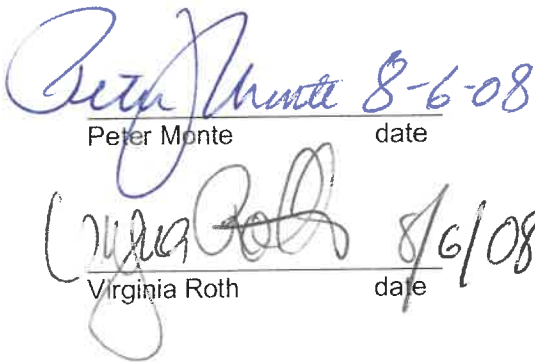 Peter Monte 8-6-08
Peter Monte date
Virginia Roth 8/6/08
Virginia Roth date